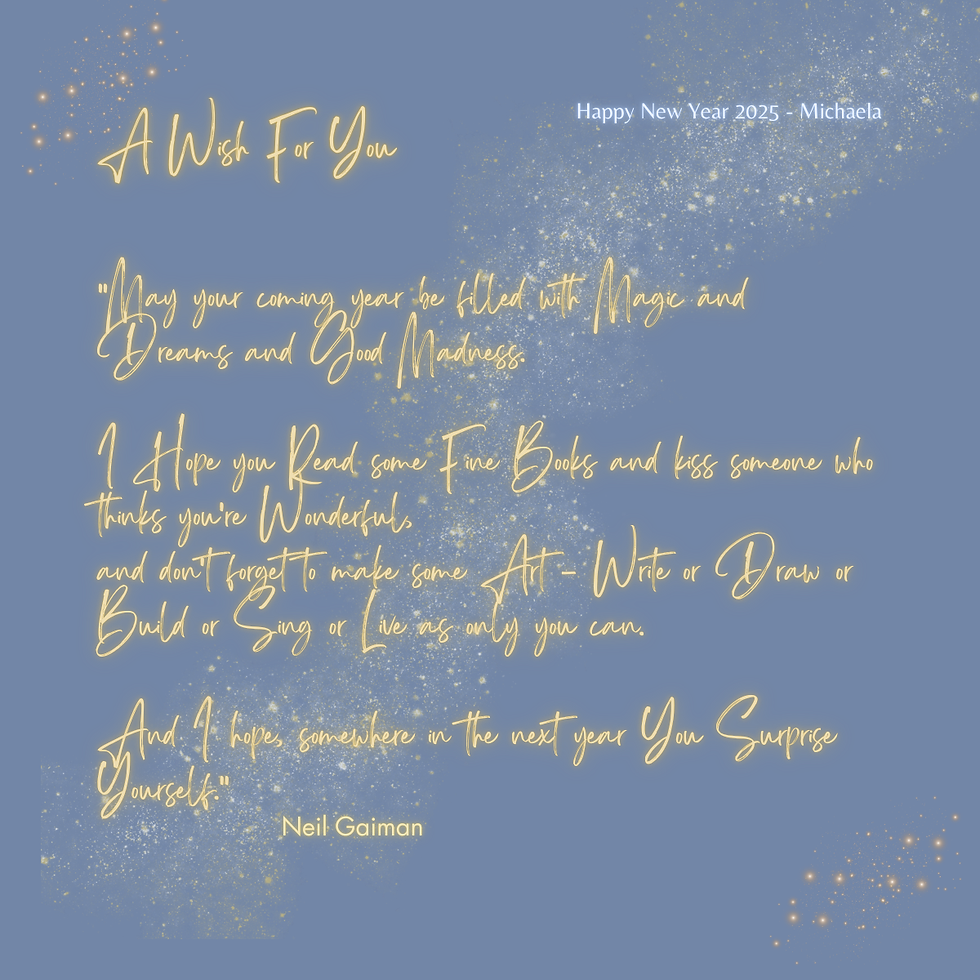 A Wish For You
Happy New Year 2025 - Michaela
"May your coming year be filled with Magic and
Dreams and Good Madness.
I Hope you Read some Fine Books and kiss someone who
thinks you're Wonderful,
and don't forget to make some Art - Write or Draw or
Build or Sing or Live as only you can.
And I hope, somewhere in the next year You Surprise
Yourself."
Neil Gaiman